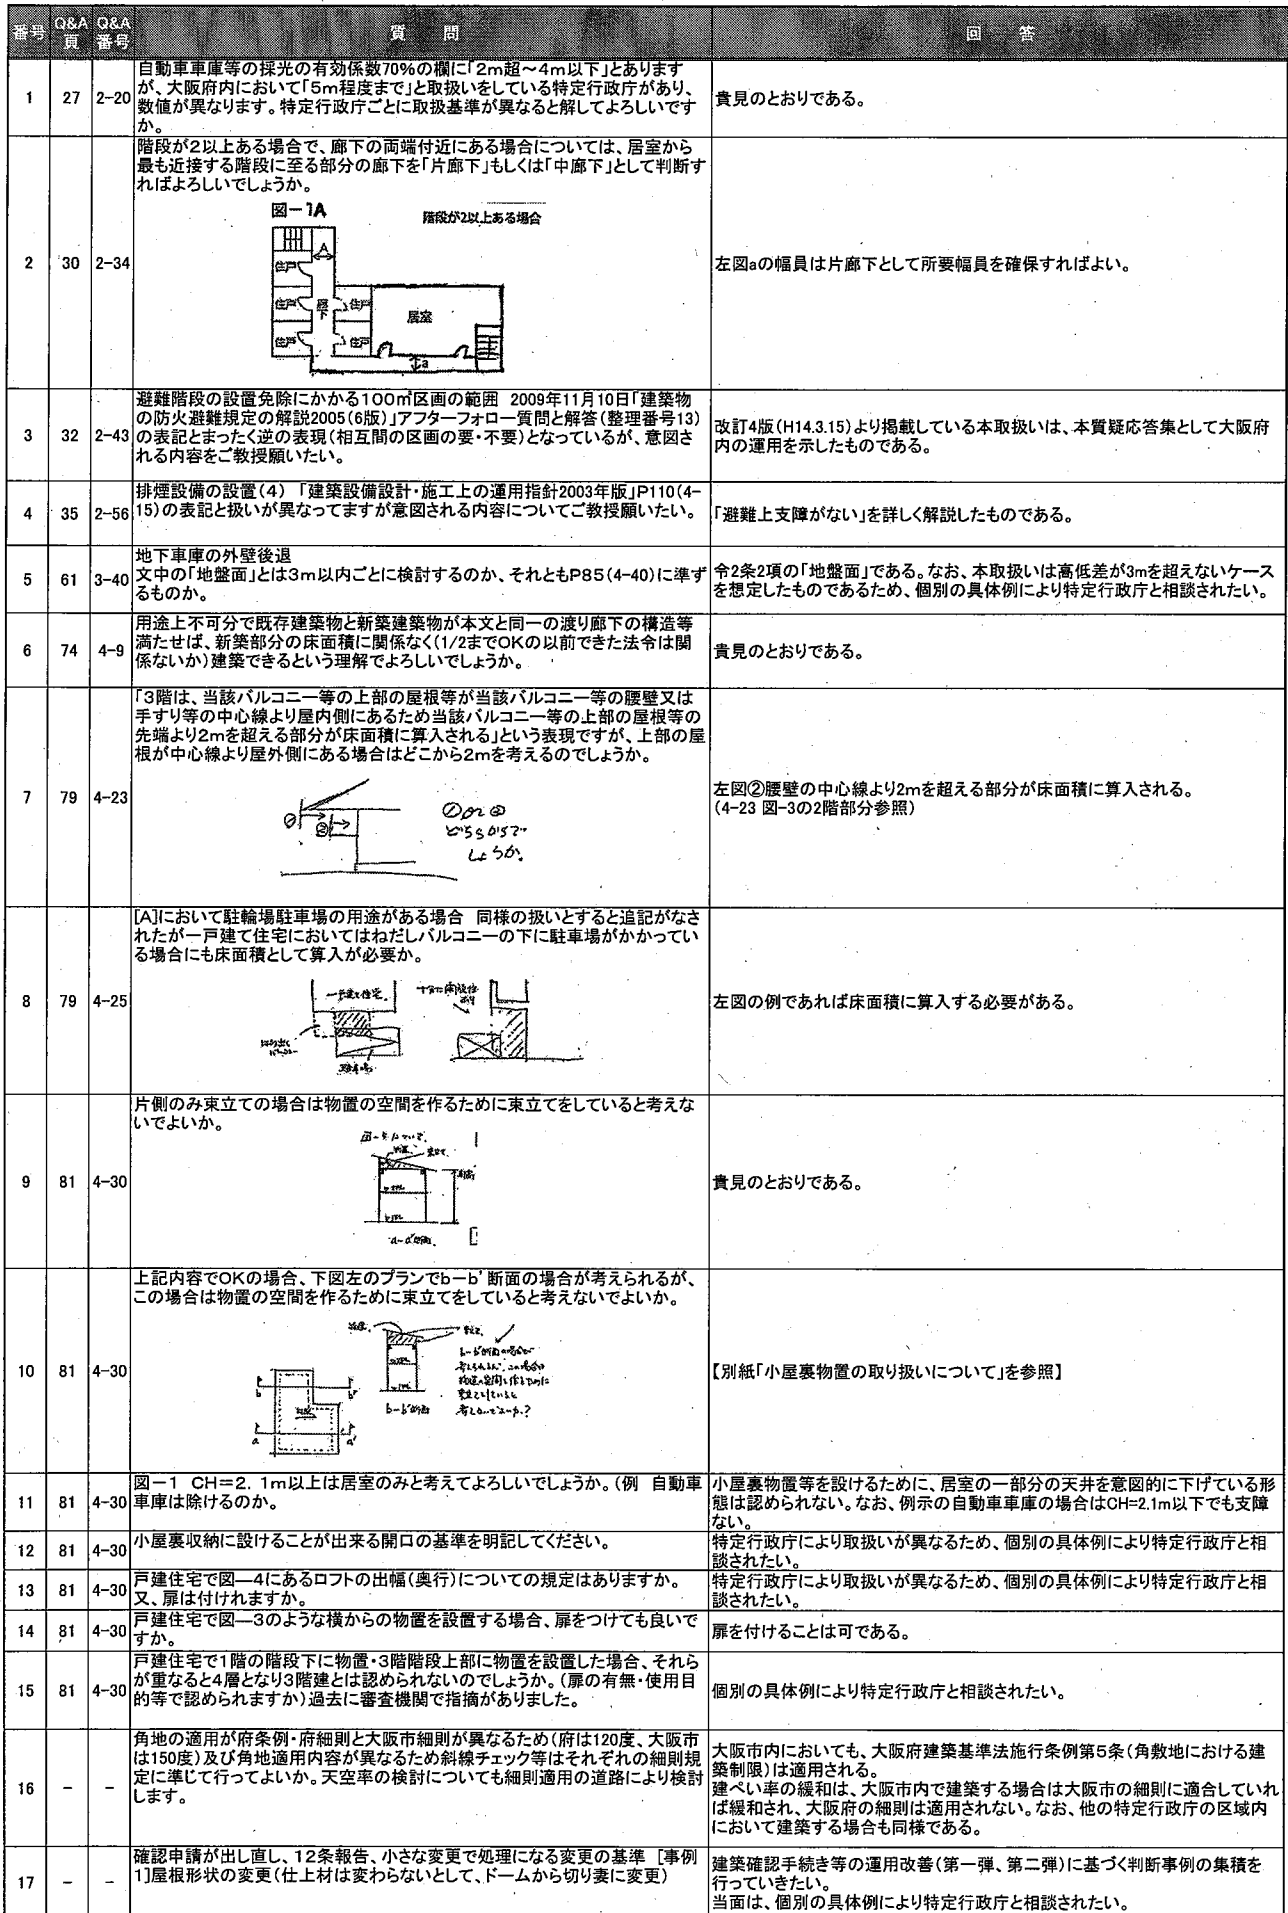 番号 Q&A頁 Q&A番号 質 問 回 答
1 27 2-20
自動車車庫等の採光の有効係数70%の欄に「2m超～4m以下」とあります
が、大阪府内において「5m程度まで」と取扱いをしている特定行政庁があり、
数値が異なります。特定行政庁ごとに取扱基準が異なると解してよろしいです
か。
貴見のとおりである。
2 30 2-34
階段が2以上ある場合で、廊下の両端付近にある場合については、居室から
最も近接する階段に至る部分の廊下を「片廊下」もしくは「中廊下」として判断す
ればよろしいでしょうか。
図－1A
階段が2以上ある場合
A
住戸
住戸 廊下 住戸
居室
住戸 住戸
a
左図aの幅員は片廊下として所要幅員を確保すればよい。
3 32 2-43
避難階段の設置免除にかかる100㎡区画の範囲 2009年11月10日「建築物
の防火避難規定の解説2005(6版)」アフターフォロー質問と解答(整理番号13)
の表記とまったく逆の表現(相互間の区画の要・不要)となっているが、意図さ
れる内容をご教授願いたい。
改訂4版(H14.3.15)より掲載している本取扱いは、本質疑応答集として大阪府
内の運用を示したものである。
4 35 2-56
排煙設備の設置(4) 「建築設備設計・施工上の運用指針2003年版」P110(4-
15)の表記と扱いが異なってますが意図される内容についてご教授願いたい。
「避難上支障がない」を詳しく解説したものである。
5 61 3-40
地下車庫の外壁後退
文中の「地盤面」とは3m以内ごとに検討するのか、それともP85(4-40)に準ず
るものか。
令2条2項の「地盤面」である。なお、本取扱いは高低差が3mを超えないケース
を想定したものであるため、個別の具体例により特定行政庁と相談されたい。
6 74 4-9
用途上不可分で既存建築物と新築建築物が本文と同一の渡り廊下の構造等
満たせば、新築部分の床面積に関係なく(1/2までOKの以前できた法令は関
係ないか)建築できるという理解でよろしいでしょうか。
貴見のとおりである。
7 79 4-23
「3階は、当該バルコニー等の上部の屋根等が当該バルコニー等の腰壁又は
手すり等の中心線より屋内側にあるため当該バルコニー等の上部の屋根等の
先端より2mを超える部分が床面積に算入される」という表現ですが、上部の屋
根が中心線より屋外側にある場合はどこから2mを考えるのでしょうか。
① ②
①or②
どちらからで
しょうか。
左図②腰壁の中心線より2mを超える部分が床面積に算入される。
(4-23 図-3の2階部分参照)
8 79 4-25
[A]において駐輪場駐車場の用途がある場合 同様の扱いとすると追記がなさ
れたが一戸建て住宅においてはねだしバルコニーの下に駐車場がかかってい
る場合にも床面積として算入が必要か。
一戸建て住宅
十分に開放性
あり
はね出し
バルコニー
駐車場
左図の例であれば床面積に算入する必要がある。
9 81 4-30
片側のみ束立ての場合は物置の空間を作るために束立てをしていると考えな
いでよいか。
物置 束立て
a-a'断面
貴見のとおりである。
10 81 4-30
上記内容でOKの場合、下図左のプランでb－b'断面の場合が考えられるが、
この場合は物置の空間を作るために束立てをしていると考えないでよいか。
物置 束立て
b-b'断面の場合が
考えられるが、この場合は
物置の空間を作るために
束立てをしていると
考えないでよいか?
b b'
a a'
b-b'断面
【別紙「小屋裏物置の取り扱いについて」を参照】
11 81 4-30
図－1 CH＝2．1m以上は居室のみと考えてよろしいでしょうか。(例 自動車
車庫は除けるのか。
小屋裏物置等を設けるために、居室の一部分の天井を意図的に下げている形
態は認められない。なお、例示の自動車車庫の場合はCH=2.1m以下でも支障
ない。
12 81 4-30
小屋裏収納に設けることが出来る開口の基準を明記してください。
特定行政庁により取扱いが異なるため、個別の具体例により特定行政庁と相
談されたい。
13 81 4-30
戸建住宅で図―4にあるロフトの出幅(奥行)についての規定はありますか。
又、扉は付けれますか。
特定行政庁により取扱いが異なるため、個別の具体例により特定行政庁と相
談されたい。
14 81 4-30
戸建住宅で図―3のような横からの物置を設置する場合、扉をつけても良いで
すか。
扉を付けることは可である。
15 81 4-30
戸建住宅で1階の階段下に物置・3階階段上部に物置を設置した場合、それら
が重なると4層となり3階建とは認められないのでしょうか。(扉の有無・使用目
的等で認められますか)過去に審査機関で指摘がありました。
個別の具体例により特定行政庁と相談されたい。
16 － －
角地の適用が府条例・府細則と大阪市細則が異なるため(府は120度、大阪市
は150度)及び角地適用内容が異なるため斜線チェック等はそれぞれの細則規
定に準じて行ってよいか。天空率の検討についても細則適用の道路により検討
します。
大阪市内においても、大阪府建築基準法施行条例第5条(角敷地における建
築制限)は適用される。
建ぺい率の緩和は、大阪市内で建築する場合は大阪市の細則に適合していれ
ば緩和され、大阪府の細則は適用されない。なお、他の特定行政庁の区域内
において建築する場合も同様である。
17 － －
確認申請が出し直し、12条報告、小さな変更で処理になる変更の基準 [事例
1]屋根形状の変更(仕上材は変わらないとして、ドームから切り妻に変更)
建築確認手続き等の運用改善(第一弾、第二弾)に基づく判断事例の集積を
行っていきたい。
当面は、個別の具体例により特定行政庁と相談されたい。